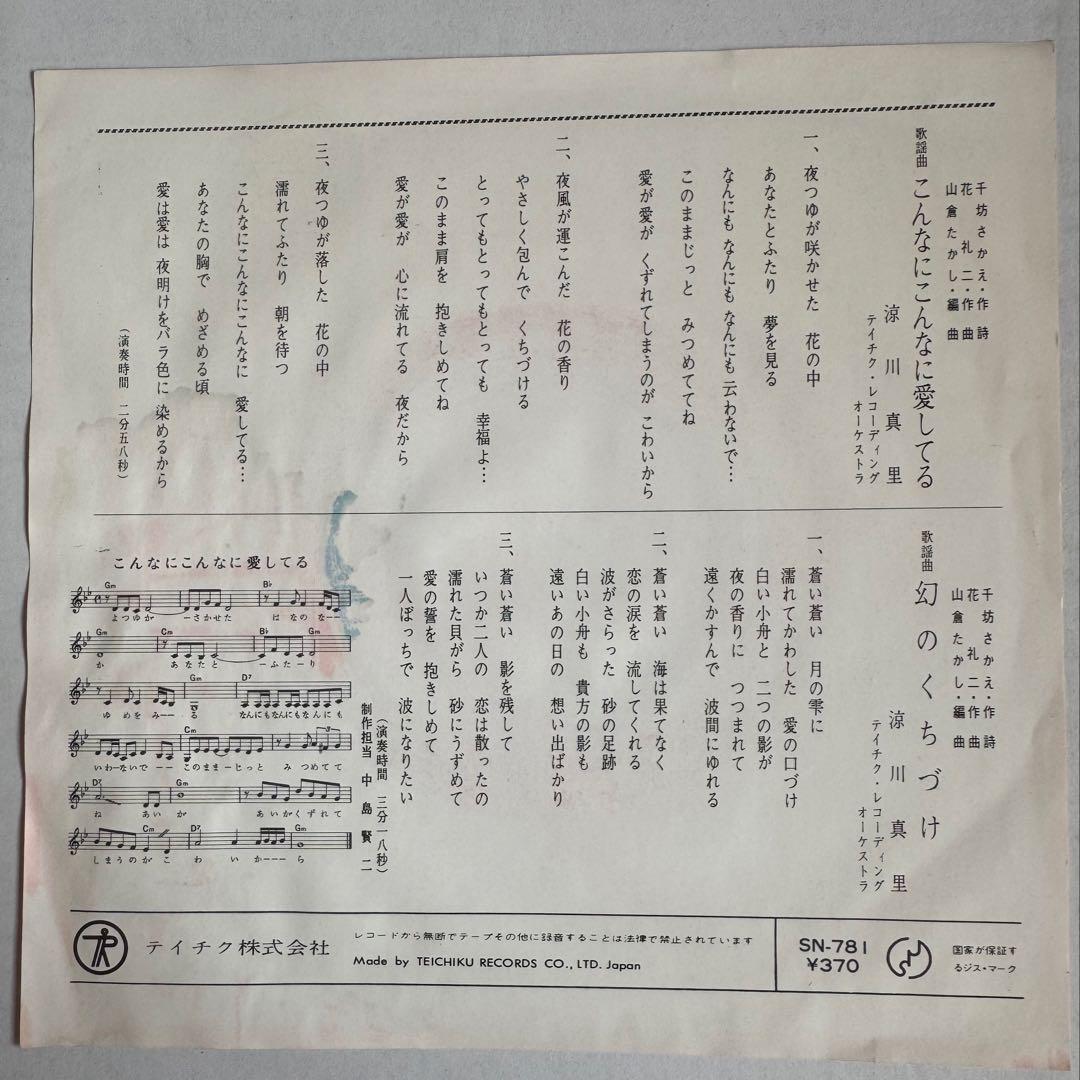 千坊さかえ・作詩
花礼二・作曲
山倉たかし・編曲
歌謡曲 こんなにこんなに愛してる
涼川真里
テイチク・レコーディング
オーケストラ
一、夜つゆが咲かせた 花の中
あなたとふたり 夢を見る
なんにも なんにも なんにも 云わないで…
このままじっと みつめててね
愛が愛が くずれてしまうのが こわいから
二、夜風が運こんだ 花の香り
やさしく包んで くちづける
とってもとってもとっても 幸福よ…
このまま肩を 抱きしめてね
愛が愛が 心に流れてる 夜だから
三、夜つゆが落した 花の中
濡れてふたり 朝を待つ
こんなにこんなにこんなに 愛してる…
あなたの胸で めざめる頃
愛は愛は 夜明けをバラ色に 染めるから
(演奏時間 二分五八秒)
千坊さかえ・作詩
花礼二・作曲
山倉たかし・編曲
歌謡曲 幻のくちづけ
涼川真里
テイチク・レコーディング
オーケストラ
一、蒼い蒼い 月の雫に
濡れてかわした 愛の口づけ
白い小舟と 二つの影が
夜の香りに つつまれて
遠くかすんで 波間にゆれる
二、蒼い蒼い 海は果てなく
恋の涙を 流してくれる
波がさらった 砂の足跡
白い小舟も 貴方の影も
遠いあの日の 想い出ばかり
三、蒼い蒼い 影を残して
いつか二人の 恋は散ったの
濡れた貝がら 砂にうずめて
愛の誓を 抱きしめて
一人ぼっちで 波になりたい
(演奏時間 三分一八秒)
制作担当 中島賢二
こんなにこんなに愛してる
Gm B♭
よつゆが ーさかせた はなのなーー
Gm Cm B♭ Gm
か あなたと ーふたーり
Gm D7
ゆめをみーーる なんにもなんにもなんにも
Gm Cm
いわーないでーー このままーじっと みつめてて
D7 Gm
ね あいが あいがくずれて
Cm D7 Gm
しまうのがこ わいかーーーら
テイチク株式会社
レコードから無断でテープその他に録音することは法律で禁止されています
Made by TEICHIKU RECORDS CO., LTD. Japan
SN-781
¥370
国家が保証す
るジス・マーク